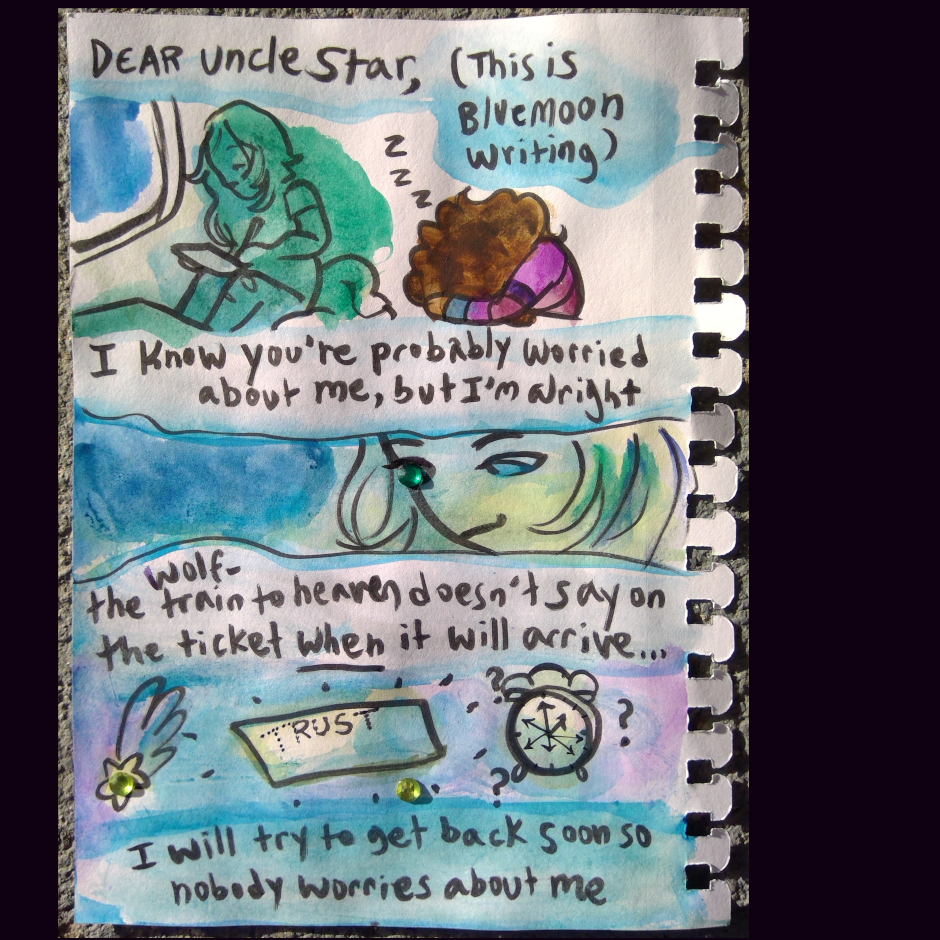 DEAR uncle Star, (This is
Bluemoon
writing)
z
z
z
I know you're probably worried
about me, but I'm alright
wolf-
the train to heaven doesn't say on
the ticket when it will arrive...
TRUST
? ? ?
I will try to get back soon so
nobody worries about me